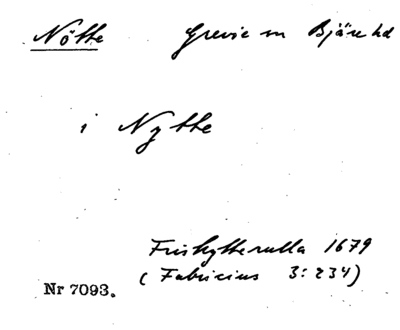 Nötte Grevie sn Bjäre hd
i Nytte
Friskytterulla 1679
(Fabricius 3:234)
Nr 7093.